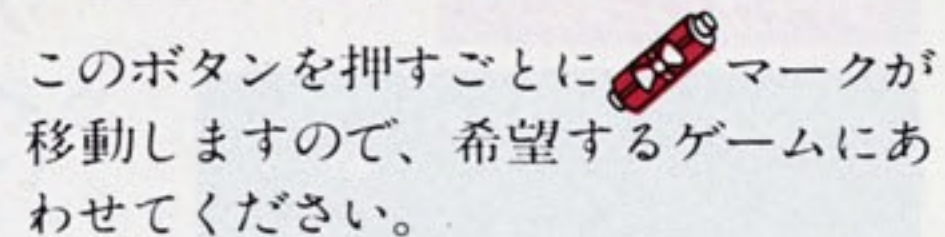 このボタンを押すごとに マークが
移動しますので、希望するゲームにあ
わせてください。